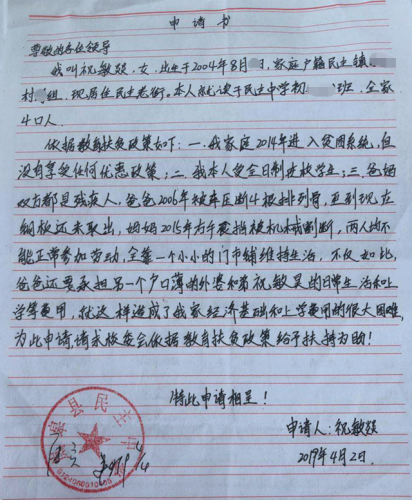 申请书
尊敬的各位领导
我叫祝敏燚,女,出生于2004年8月 日,家庭户籍民主镇
村 组,现居住民主老街。本人就读于民主中学初 班,全家
4口人。
依据教育扶贫政策如下:一.我家庭2014年进入贫困系统,但
没有享受任何优惠政策;二.我本人是全日制在校学生;三.爸妈
双方都是残疾人,爸爸2006年被车压断4根排列骨,直到现在
钢板还未取出,妈妈2015年右手食指被机械割断,两人均不
能正常参加劳动,全靠一个小小的门市铺维持生活,不仅如此,
爸爸还要承担另一个户口薄的外婆和弟祝敏昊的日常生活和上
学等费用,就这样造成了我家经济基础和上学费用的很大困难,
为此申请,请求校委会依据教育扶贫政策给予扶持为盼!
特此申请相呈!
申请人:祝敏燚
2019年4月2日.
县民主